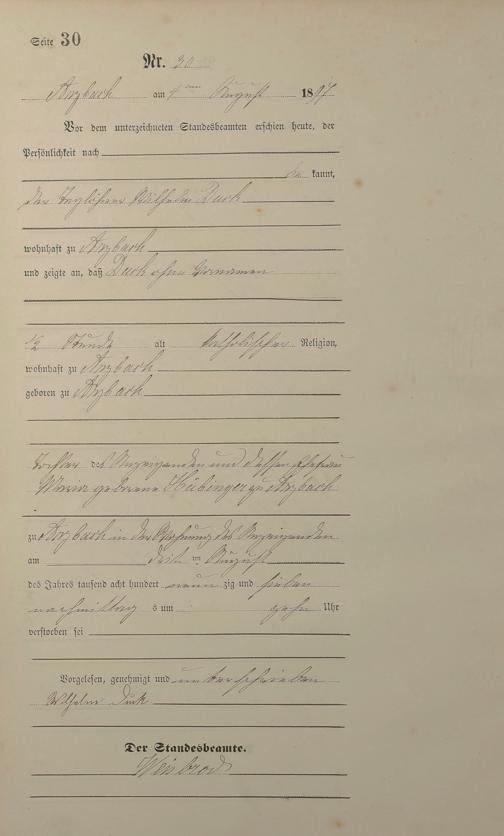 Seite 30
Nr. 30
Arzbach am 4ten August 1897
Vor dem unterzeichneten Standesbeamten erschien heute, der
Persönlichkeit nach
be kannt,
der Taglöhner Wilhelm Duck
wohnhaft zu Arzbach
und zeigte an, daß Duck ohne Vornamen
1/2 Stunde alt katholischer Religion,
wohnhaft zu Arzbach
geboren zu Arzbach
Tochter des Anzeigenden und dessen Ehefrau
Maria geborene Hübinger zu Arzbach
zu Arzbach in der Wohnung des Anzeigenden
am August
des Jahres tausend acht hundert neun zig und sieben
nachmittag s um zehn Uhr
verstorben sei
Vorgelesen, genehmigt und unterschrieben
Wilhelm Duck
Der Standesbeamte.
Weisbrod